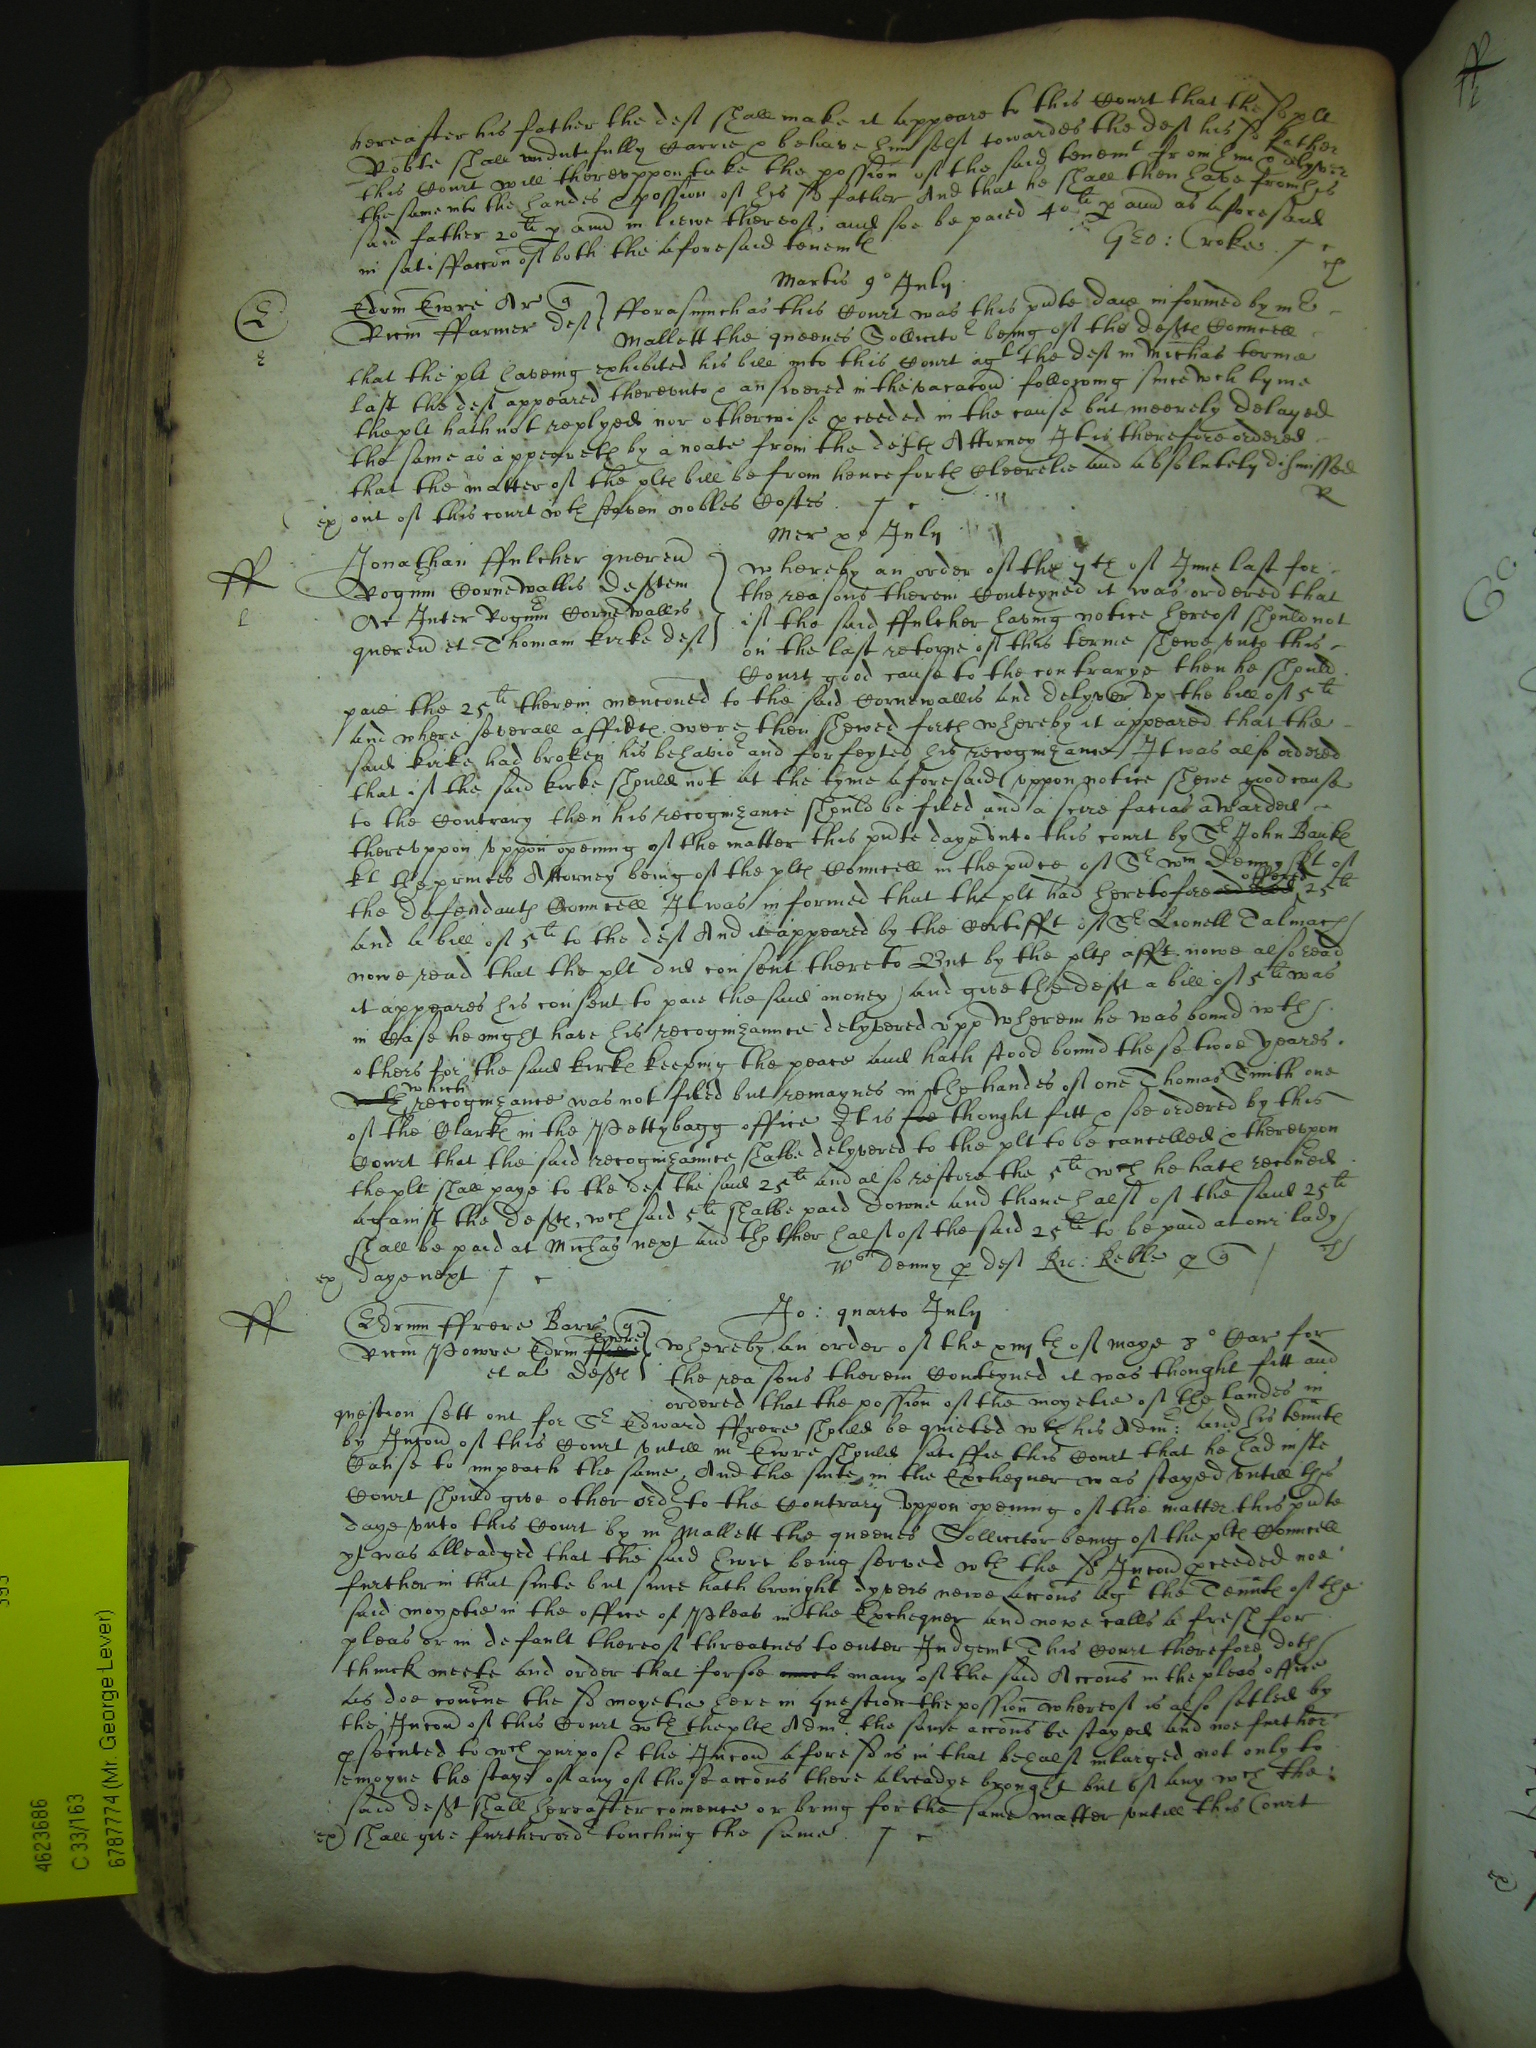 hereafter his father the deft shall make it appeare to this Court that the sd plt
Noble shall undutifully Carrie & behave him self towardes the deft his sd Father
this Court will thereuppon take the possion of the said tenemt from him & delyver
the same into the handes & possion of his sd father And that he shall then have from his
said father 20li p ann in liewe thereof, and soe be paied 40li p ann as aforesaid
in satisfaccon of both the aforesaid tenemts
Geo: Croke
Martis 9o July
Edrus Ewre Ar q
Ricus Farmer deft
fforasmuch as this Court was this pnte daie informed by mr
Mallett the queenes Sollicitor being of the defts Councell
that the plt haveing exhibited his bill into this Court agt the deft in Michas terme
last the deft appeared thereunto & answered in the vacacon following since wch tyme
the plt hath not replyed nor otherwise pceeded in the cause but meerely delayed
the same as appeareth by a noate from the defts Attorney It is therefore ordered
that the matter of the plts bill be from henceforth cleerelie and absolutely dismissed
ex out of this court wth seaven nobles Costes
R
Mer xo July
ff
Jonathan ffulcher queren
Rogerum Cornewallis Defftem
Ac Inter Rogerum Cornewallis
queren et Thomam Kirke deft
whereby an order of the 7th of June last for
the reasons therein Conteyned it was ordered that
if the said ffulcher having notice hereof should not
on the last retorne of this terme shewe unto this
Court good cause to the contrarye then he should
paie the 25li therein menconed to the said Cornewallis and delyver up the bill of 5li
and where severall affidts were then shewed forth whereby it appeared that the
said kirke had broken his behavior and forfeyted his recognizance It was also ordered
that if the said kirke should not at the tyme aforesaid uppon notice shewe good cause
to the Contrary then his recognizance should be filed and a scire facias awarded
thereuppon uppon opening of the matter this pnte daye unto this court by Sr John Banks
kt the princes Attorney being of the plts Councell in the pnce of Sr Wm Denny kt of
the defendants Councell It was informed that the plt had heretofore offered 25li
and a bill of 5li to the deft And it appeared by the Certifft of Sr Lionell Talmach
nowe read that the plt did consent thereto But by the plts afft nowe also read
it appeares his consent to paie the said money and give the deft a bill of 5li was
in Case he might have his recognizaunce delyvered upp wherein he was bound wth
others for the said kirks keeping the peace and hath stood bound these twoe yeares
which recognizance was not filed but remaynes in the handes of one Thomas Smith one
of the Clarks in the Pettybagg office It is thought fitt & soe ordered by this
Court that the said recognizaunce shalbe delyvered to the plt to be cancelled & thereupon
the plt shall paye to the deft the said 25li and also restore the 5li wch he hath recovered
against the deft, wch said 5li shalbe paid downe and thone half of the said 25li
shall be paid at Michas next and thother half of the said 25li to be paid at our lady
ex daye next
Wm Denny p deft Ric: Keble p q
ff
Jo: quarto July
Edrum ffrere Barr q
Ricum Powre Edrum Ewre
et al Defft
whereby an order of the xiiijth of maye 3o Car for
the reasons therein Conteyned it was thought fitt and
ordered that the possion of the moyetie of the landes in
question sett out for Sr Edward ffrere should be quieted wth his Admr: and his tennts
by Juncon of this Court untill mr Ewre should satisfie this Court that he had iuste
Cause to impeach the same, And the suite in the Exchequer was stayed untill this
Court should give other ordr to the Contrary Uppon opening of the matter this pnte
daye unto this Court by mr Mallett the queenes Sollicitor being of the plts Councell
yt was alleadged that the said Ewre being served wth the sd Juncon pceeded noe
further in that suite but since hath brought dyvers newe accons agt the Tennts of the
said moyetie in the office of Pleas in the Exchequer and nowe calls afresh for
pleas or in default thereof threatnes to enter Judgemt This Court therefore doth
think meete and order that forsoe many of the said Accons in the pleas office
as doe concrne the sd moyetie here in question the possion whereof is also setled by
the Juncon of this Court wth the plts Admr the same accons be stayed and noe further
psecuted to wch purpose the Juncon aforesd is in that behalf inlarged not only to
emoyne the stay of any of those accons there alreadye brought but of any wch the
said defft shall hereafter comence or bring for the same matter untill this Court
ex shall give further ordr touching the same
4623686
C 33/163
6787774 (Mr. George Lever)